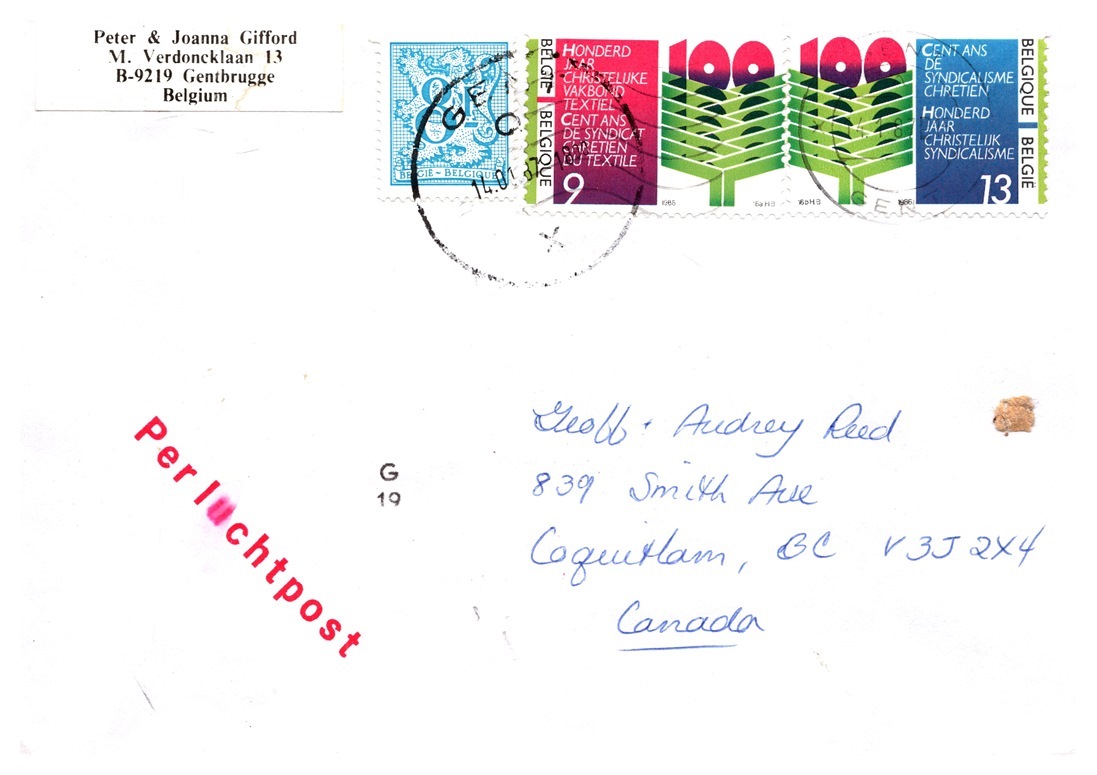 Peter & Joanna Gifford
M. Verdoncklaan 13
B-9219 Gentbrugge
Belgium
BELGIË - BELGIQUE
GENT
14.01.87
BELGIË BELGIQUE
HONDERD
JAAR
CHRISTELIJKE
VAKBOND
TEXTIEL
CENT ANS
DE SYNDICAT
CHRETIEN
DU TEXTILE
9
100
1986
100
1986
CENT ANS
DE
SYNDICALISME
CHRÉTIEN
HONDERD
JAAR
CHRISTELIJK
SYNDICALISME
13
BELGIQUE BELGIË
GENT
Per luchtpost
G
19
Geoff + Audrey Reed
839 Smith Ave
Coquitlam, BC V3J 2X4
Canada